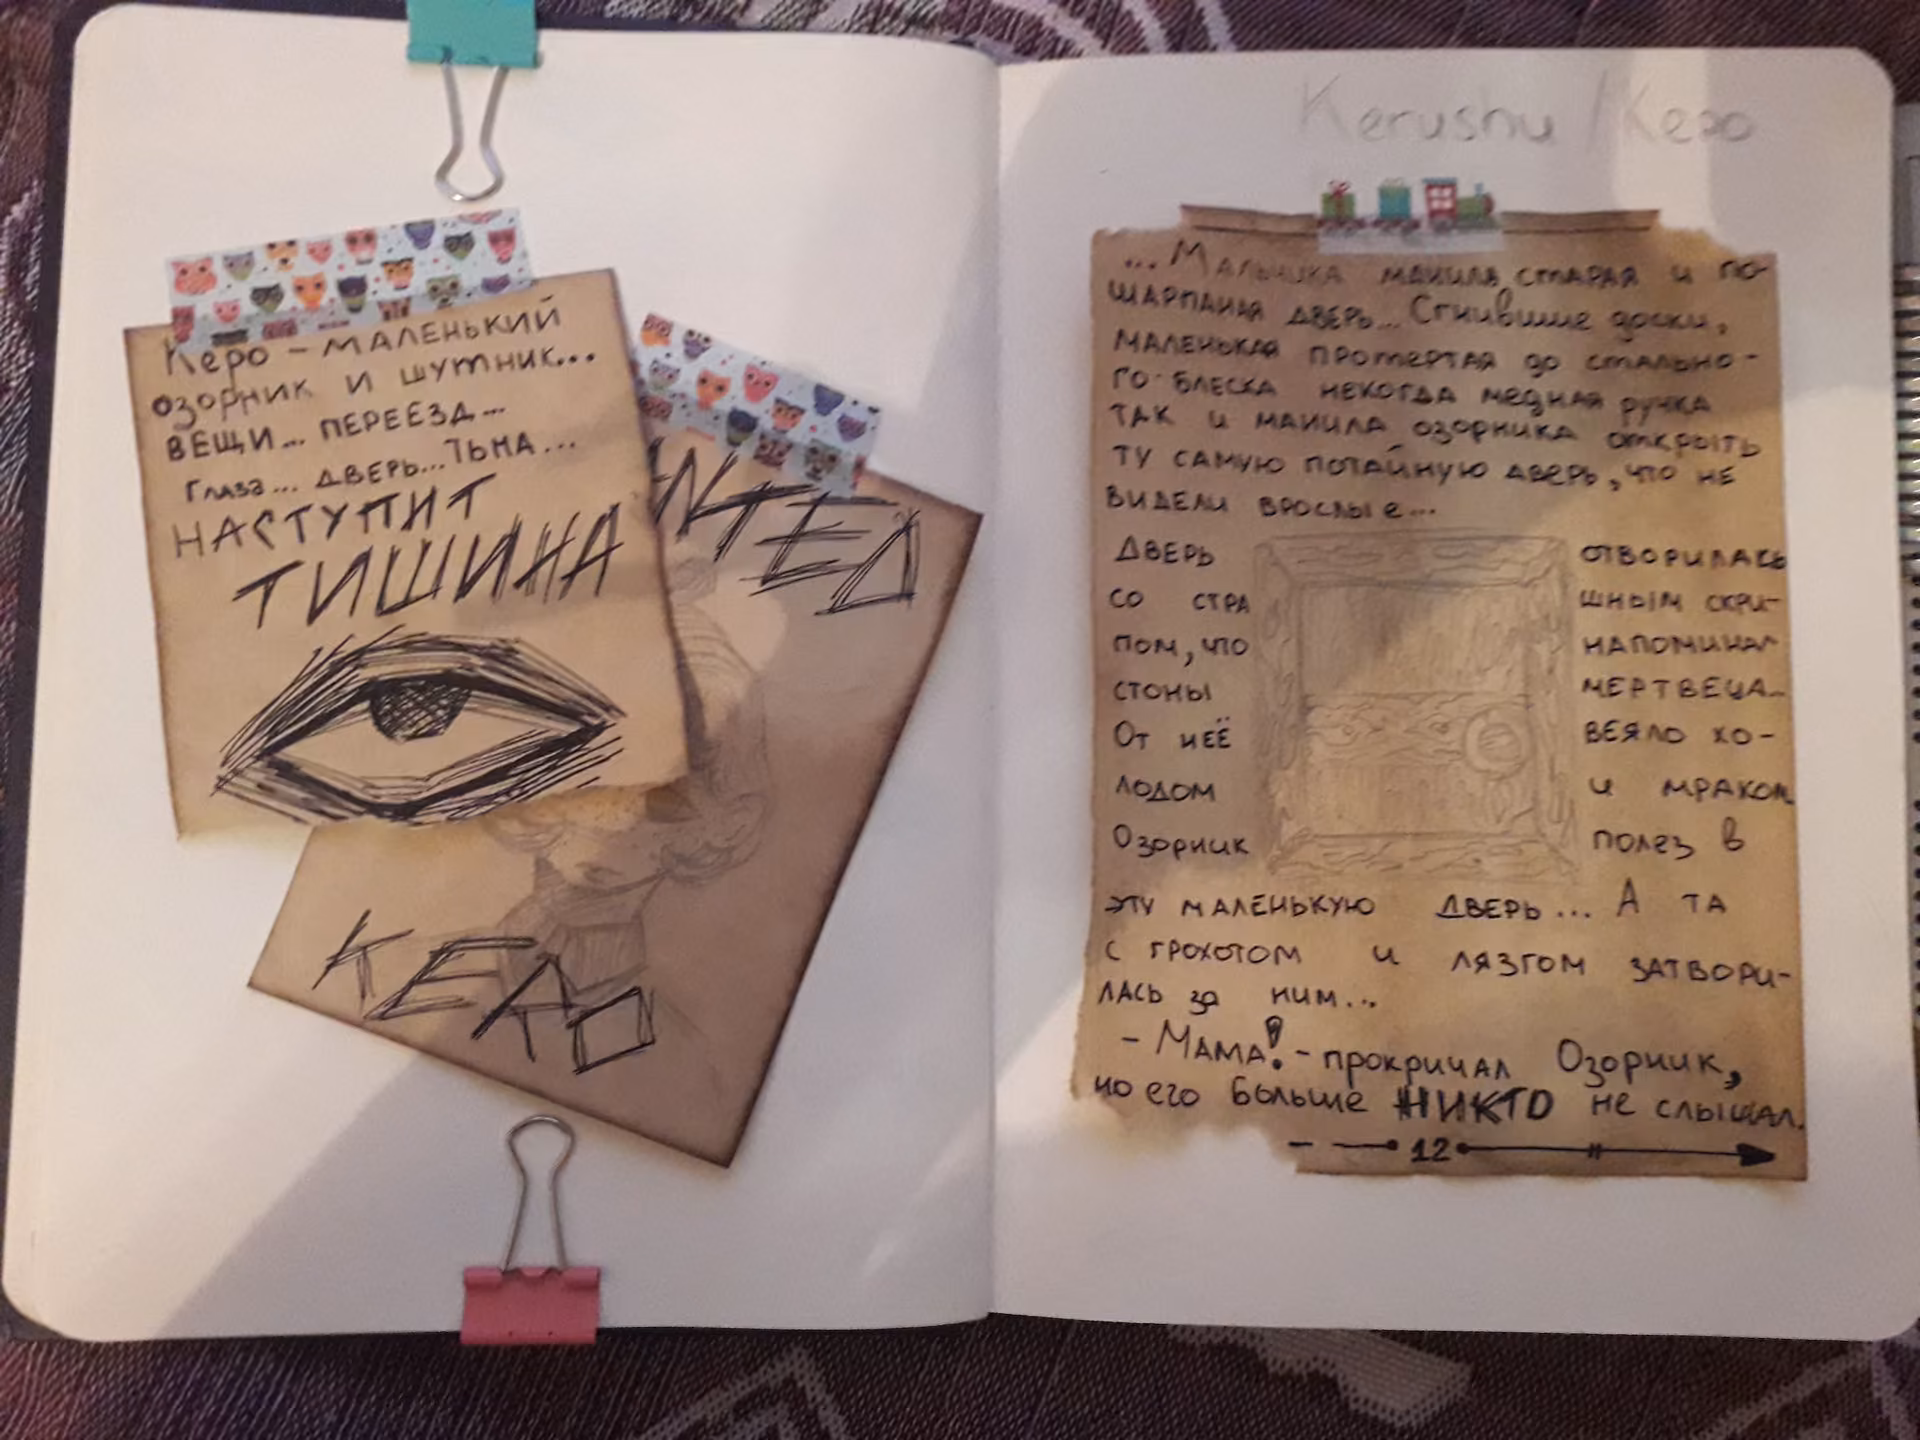 Керо – маленький
озорник и шутник...
вещи... переезд...
Глаза... дверь... Тьма...
НАСТУПИТ
ТИШИНА
NTED
КЕРО
Kerushu / Керо
...Малышка манила старая и по-
шарпаная дверь... Сгнившие доски,
маленькая протертая до стально-
го блеска некогда медная ручка
так и манила озорника открыть
ту самую потайную дверь, что не
видели врослые...
Дверь отворилась
со стра шным скри-
пом, что напоминал
стоны мертвеца...
От неё веяло хо-
лодом и мраком
Озорник полез в
эту маленькую дверь... А та
с грохотом и лязгом затвори-
лась за ним...
– Мама! – прокричал Озорник,
но его больше НИКТО не слышал.
12